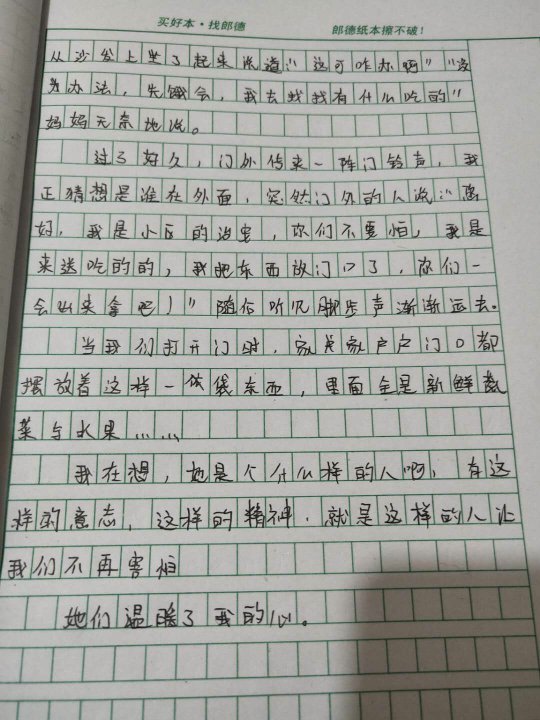 买好本·找郎德 郎德纸本擦不破!
从沙发上坐了起来说道:"这可咋办啊""没
办法,先饿会,我去找找有什么吃的"
妈妈无奈地说。
过了好久,门外传来一阵门铃声,我
正猜想是谁在外面,突然门外的人说:"
好,我是小区的,你们不要怕,我是
来送吃的的,我把东西放门口了,你们一
会出来拿吧!"随后听见脚步声渐渐远去。
当我们打开门时,家家户户门口都
摆放着这样一袋东西,里面全是新鲜蔬
菜与水果……
我在想,她是个什么样的人啊,有这
样的意志,这样的精神.就是这样的人让
我们不再害怕
她们温暖了我的心。